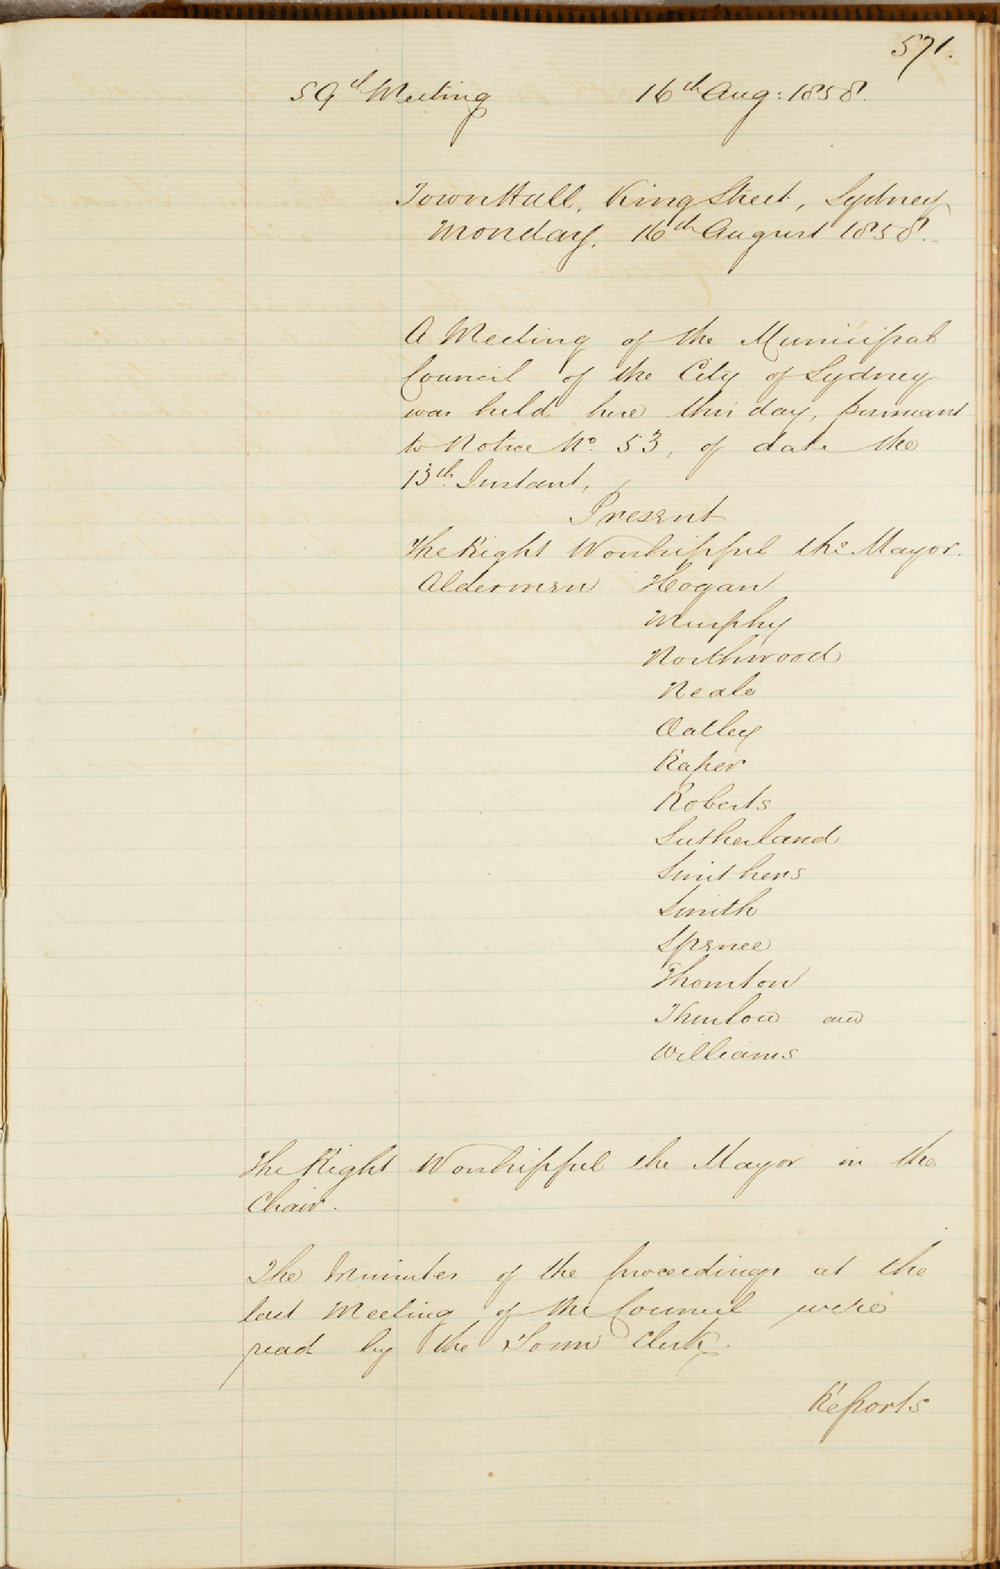 571.
59th Meeting 16th Aug: 1858.
Town Hall, King Street, Sydney
Monday, 16th August 1858.
A Meeting of the Municipal
Council of the City of Sydney
was held here this day, pursuant
to Notice No. 53, of date the
13th Instant,
Present
The Right Worshipful the Mayor.
Aldermen Hogan
Murphy
Northwood
Neale
Oatley
Raper
Roberts
Sutherland
Smithers
Smith
Spence
Thornton
Thurlow and
Williams
The Right Worshipful the Mayor in the
Chair.
The Minutes of the proceedings at the
last Meeting of the Council were
read by the Town Clerk.
Reports